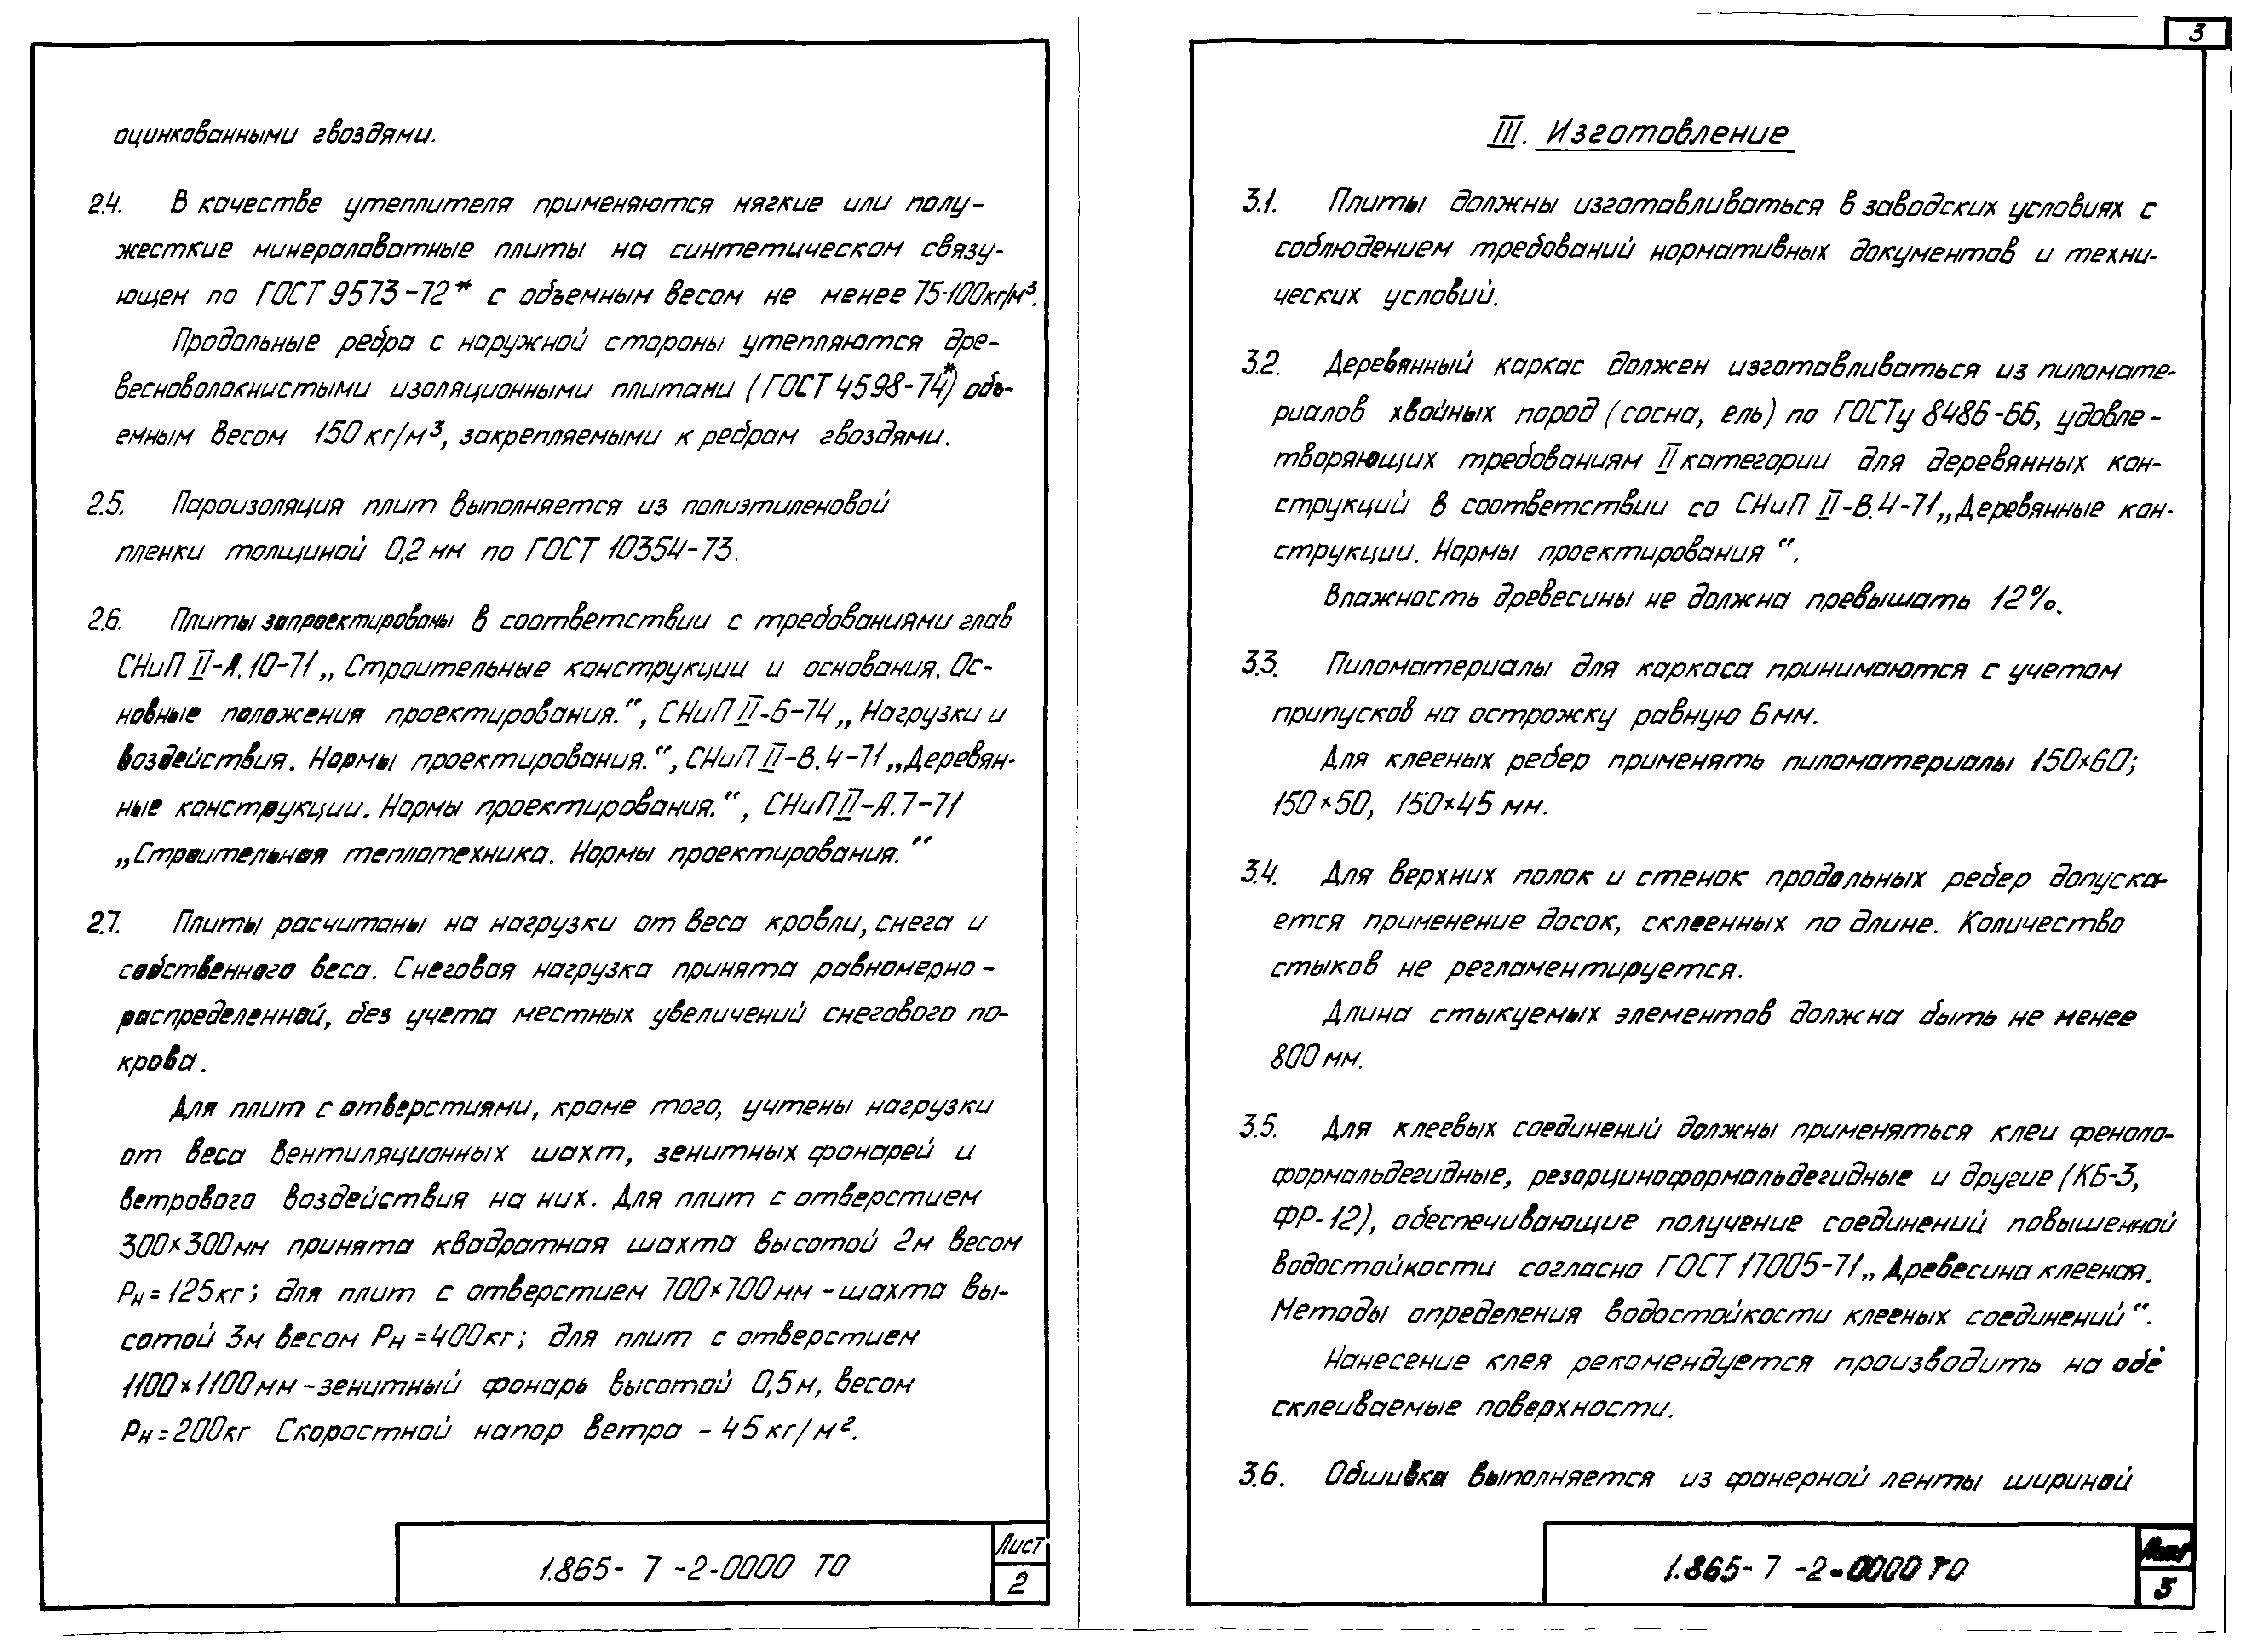 оцинкованными гвоздями.
2.4. В качестве утеплителя применяются мягкие или полу-
жесткие минераловатные плиты на синтетическом связу-
ющем по ГОСТ 9573-72* с объемным весом не менее 75-100кг/м³.
Продольные ребра с наружной стороны утепляются дре-
весноволокнистыми изоляционными плитами (ГОСТ 4598-74*) объ-
емным весом 150 кг/м³, закрепляемыми к ребрам гвоздями.
2.5. Пароизоляция плит выполняется из полиэтиленовой
пленки толщиной 0,2 мм по ГОСТ 10354-73.
2.6. Плиты запроектированы в соответствии с требованиями глав
СНиП II-А.10-71 „Строительные конструкции и основания. Ос-
новные положения проектирования.“, СНиП II-6-74 „Нагрузки и
воздействия. Нормы проектирования.“, СНиП II-В.4-71 „Деревян-
ные конструкции. Нормы проектирования.“, СНиП II-А.7-71
„Строительная теплотехника. Нормы проектирования.“
2.7. Плиты расчитаны на нагрузки от веса кровли, снега и
собственного веса. Снеговая нагрузка принята равномерно-
распределенной, без учета местных увеличений снегового по-
крова.
Для плит с отверстиями, кроме того, учтены нагрузки
от веса вентиляционных шахт, зенитных фонарей и
ветрового воздействия на них. Для плит с отверстием
300×300мм принята квадратная шахта высотой 2м весом
Рн=125кг; для плит с отверстием 700×700мм - шахта вы-
сотой 3м весом Рн=400кг; для плит с отверстием
1100×1100мм - зенитный фонарь высотой 0,5м, весом
Рн=200кг Скоростной напор ветра - 45 кг/м².
1.865- 7 -2-0000 ТО
Лист
2
3
III. Изготовление
3.1. Плиты должны изготавливаться в заводских условиях с
соблюдением требований нормативных документов и техни-
ческих условий.
3.2. Деревянный каркас должен изготавливаться из пиломате-
риалов хвойных пород (сосна, ель) по ГОСТу 8486-66, удовле-
творяющих требованиям II категории для деревянных кон-
струкций в соответствии со СНиП II-В.4-71 „Деревянные кон-
струкции. Нормы проектирования“.
Влажность древесины не должна превышать 12%.
3.3. Пиломатериалы для каркаса принимаются с учетом
припусков на острожку равную 6мм.
Для клееных ребер применять пиломатериалы 150×60;
150×50, 150×45 мм.
3.4. Для верхних полок и стенок продольных ребер допуска-
ется применение досок, склеенных по длине. Количество
стыков не регламентируется.
Длина стыкуемых элементов должна быть не менее
800 мм.
3.5. Для клеевых соединений должны применяться клеи феноло-
формальдегидные, резорциноформальдегидные и другие (КБ-3,
ФР-12), обеспечивающие получение соединений повышенной
водостойкости согласно ГОСТ 17005-71 „Древесина клееная.
Методы определения водостойкости клееных соединений“.
Нанесение клея рекомендуется производить на обе
склеиваемые поверхности.
3.6. Обшивка выполняется из фанерной ленты шириной
1.865- 7 -2-0000 ТО
Лист
3